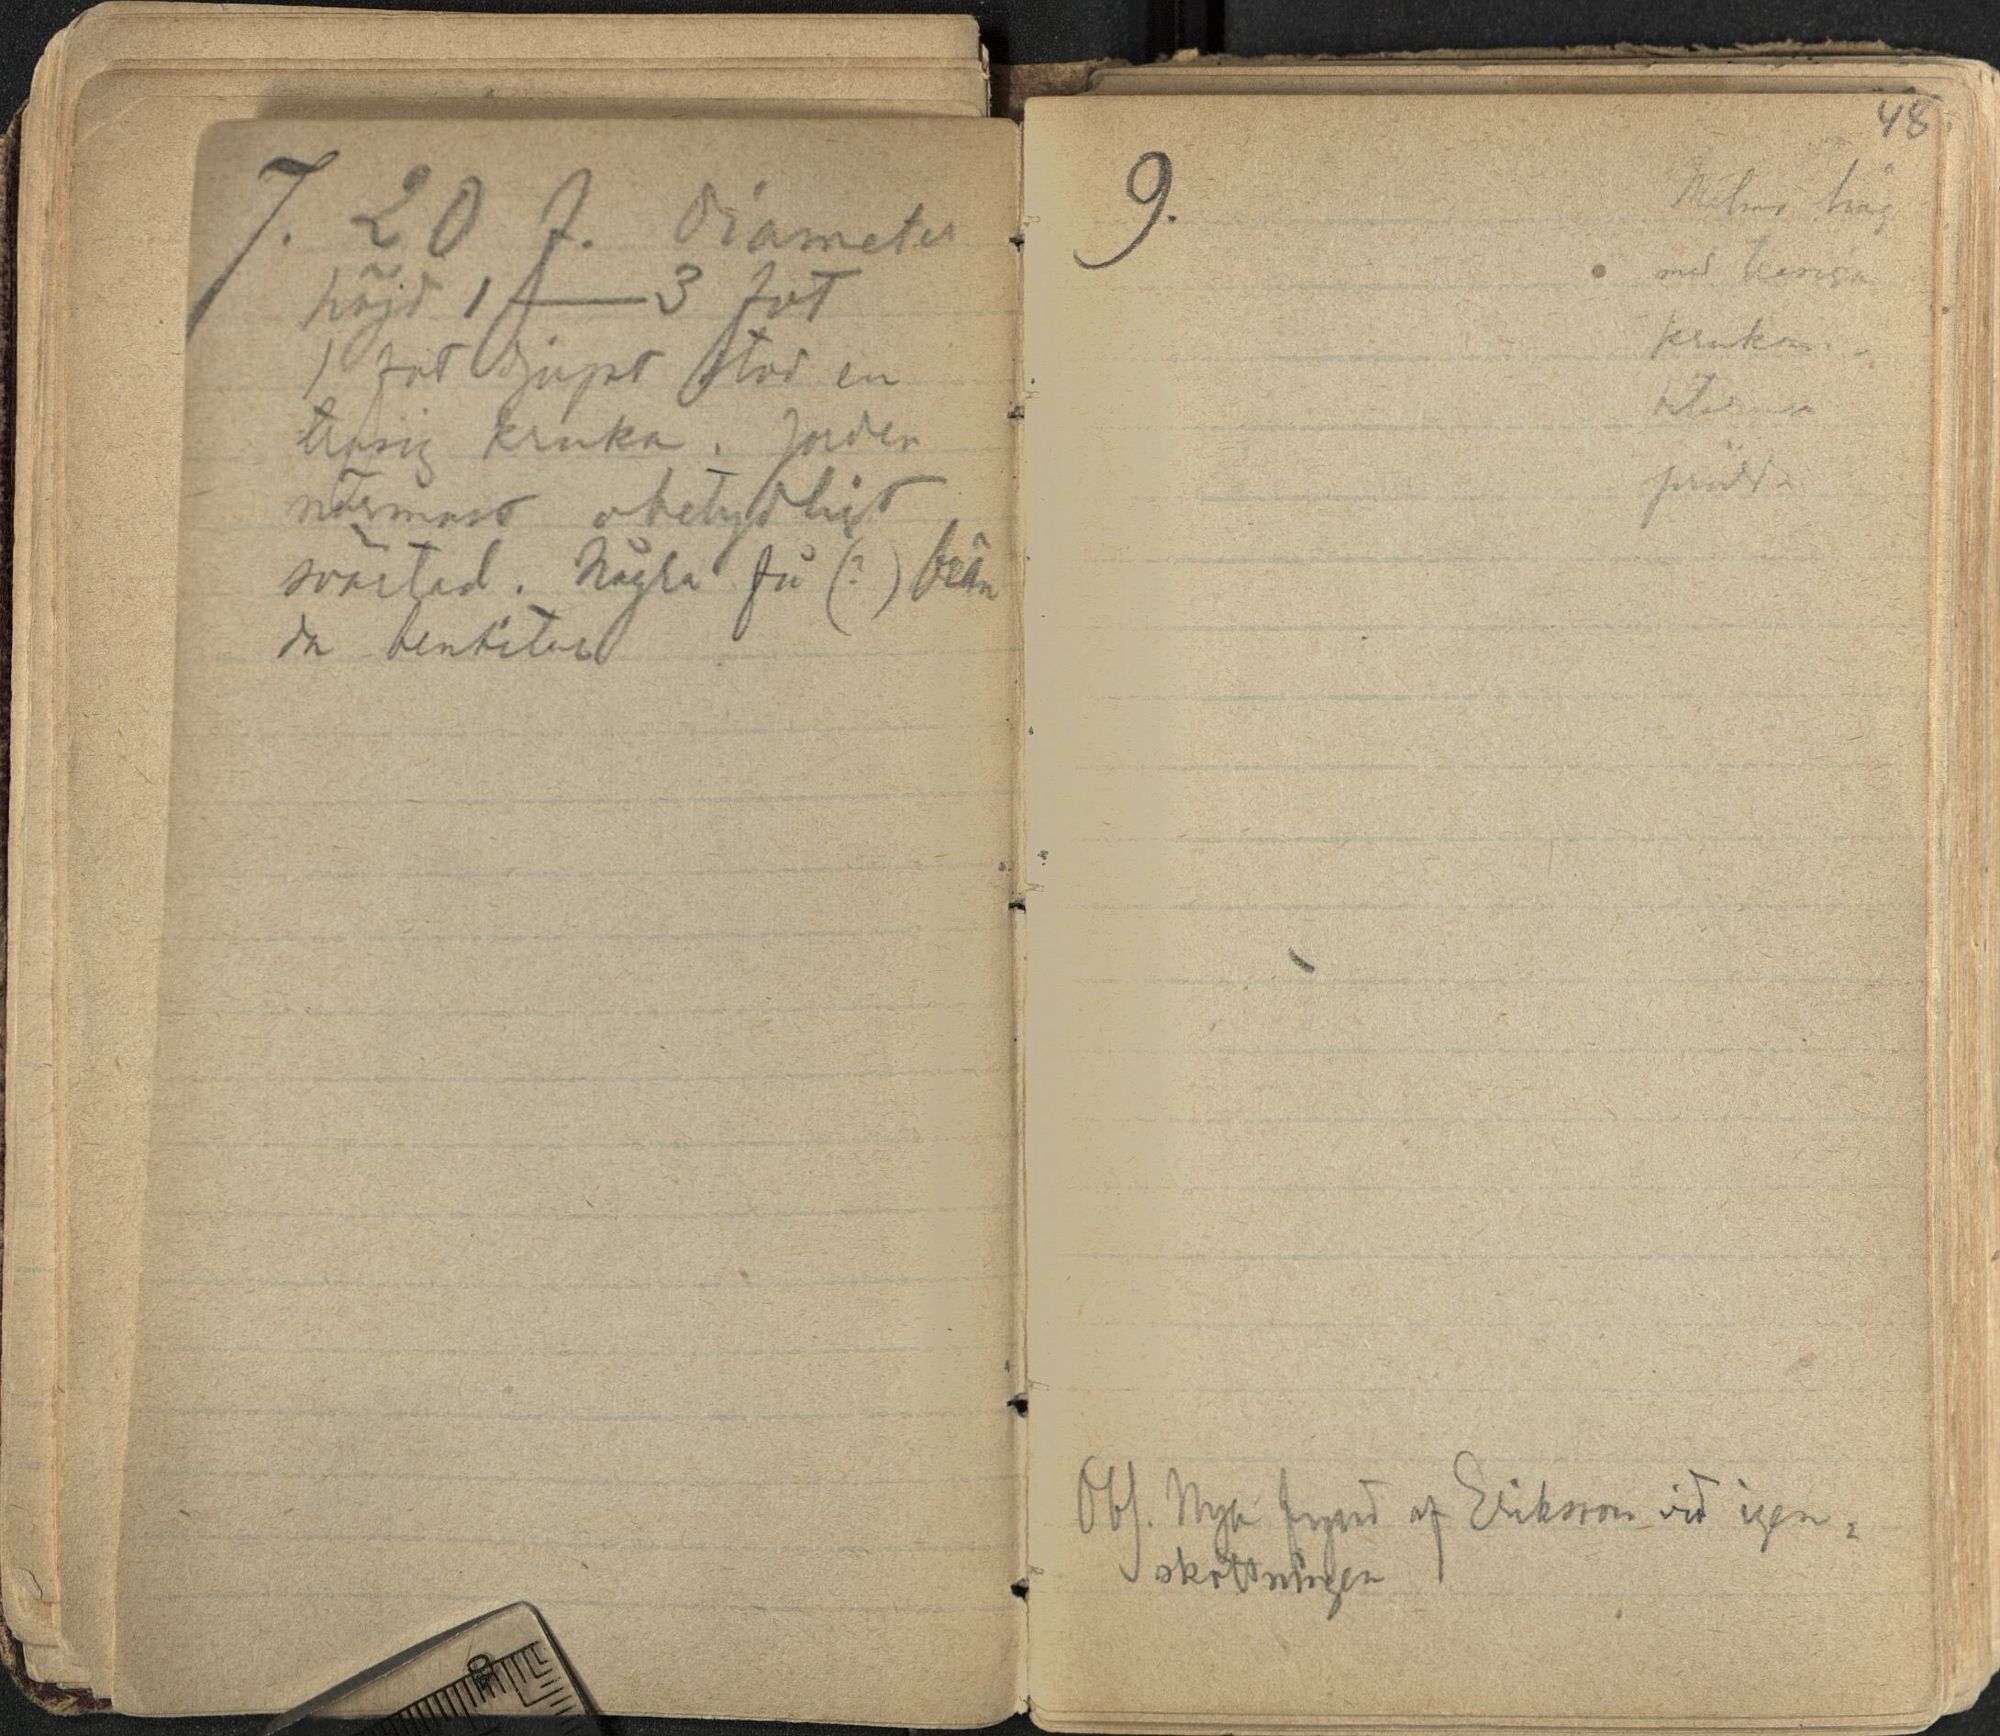 7. 20 f. diameter
höjd 1 — 3 fot
1 fot djupt stod en
trasig kruka. Jorden
närmast obetydligt
svärtad. Några få (?) brän
da benbitar
48.
9.
med trasiga
kruka
Obs. Nya fynd af Eriksson vid igen=
skottningen